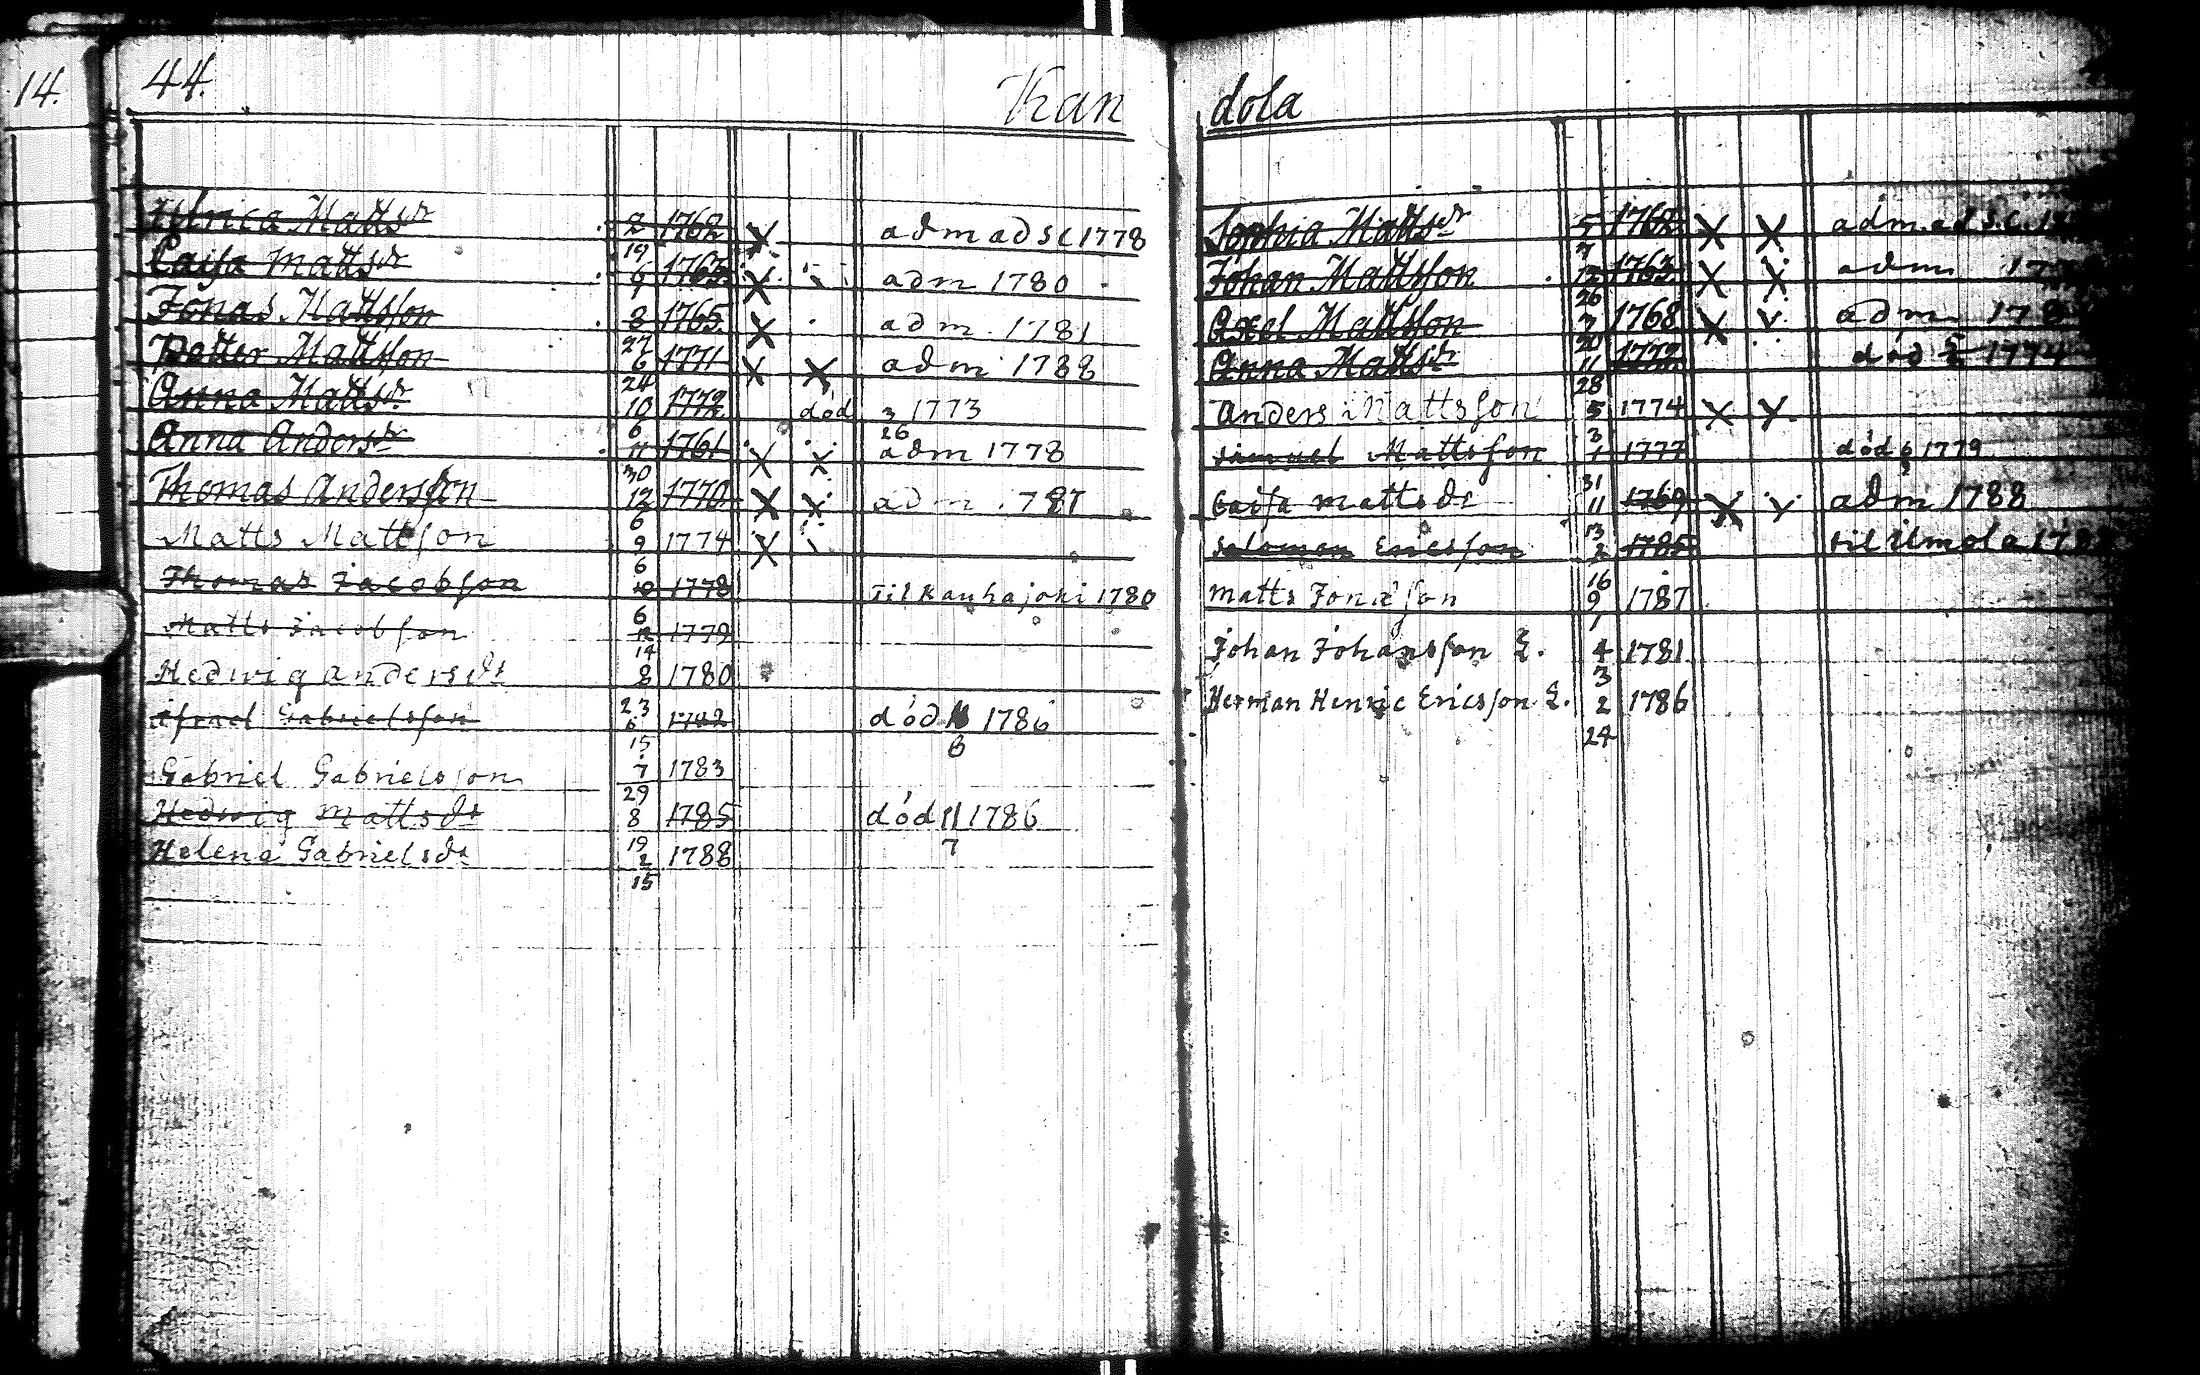 14.
44.
Kan
Ulrica Mattsdr 2 1762 X adm ad SC 1778
19
Caisa Mattsdr 6 1763 X adm 1780
9
Jonas Mattsson 8 1765 X adm. 1781
27
Petter Mattsson 6 1771 X X adm 1788
24
Anna Mattsdr 10 1772 död 3 1773
6 26
Anna Andersdr 11 1761 X X adm 1778
30
Thomas Andersson 12 1770 X X adm 1787
6
Matts Mattsson 9 1774 X
6
Thomas Jacobsson 10 1778 Til Kauhajoki 1780
6
Matts Jacobsson 12 1779
14
Hedwig Andersdr 8 1780
23
Israel Gabrielsson 6 1782 död 11 1786
15 8
Gabriel Gabrielsson 7 1783
29
Hedwig Mattsdr 8 1785 död 11 1786
19 7
Helena Gabrielsdr 2 1788
15
dola
Sophia Mattsdr 5 1762 X X adm. ad S.C.
7
Johan Mattsson 12 1763 X X adm
26
Axel Mattsson 7 1768 X X adm
20
Anna Mattsdr 11 1772 död 1774
28
Anders Mattsson 5 1774 X X
3
Samuel Mattsson 1 1777 död 6 1779
31
Caisa Mattsdr 11 1769 X X adm 1788
13
Salomon Ericsson 2 1785 til Ilmola
16
Matts Jonasson 9 1787
1
Johan Johansson 4 1781
3
Herman Henric Ericsson 2 1786
24